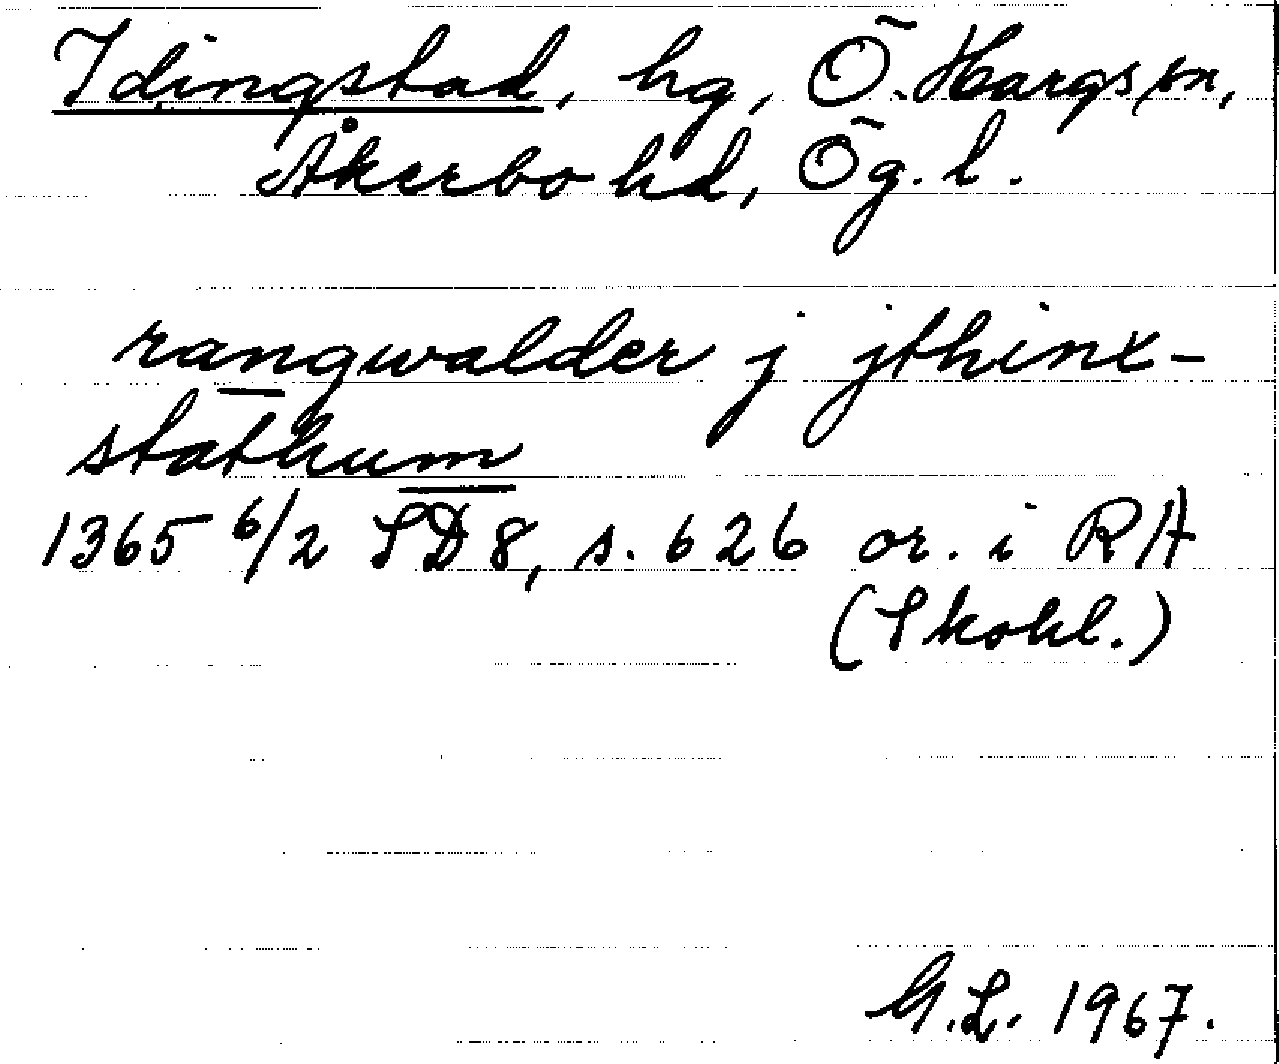 Idingstad, hg, Ö. Hargs sn,
Åkerbo hd, Ög. l.
rangwalder j jthinx-
stathum
1365 6/2 SD 8, s. 626 or. i RA
(Skokl.)
G.L. 1967.